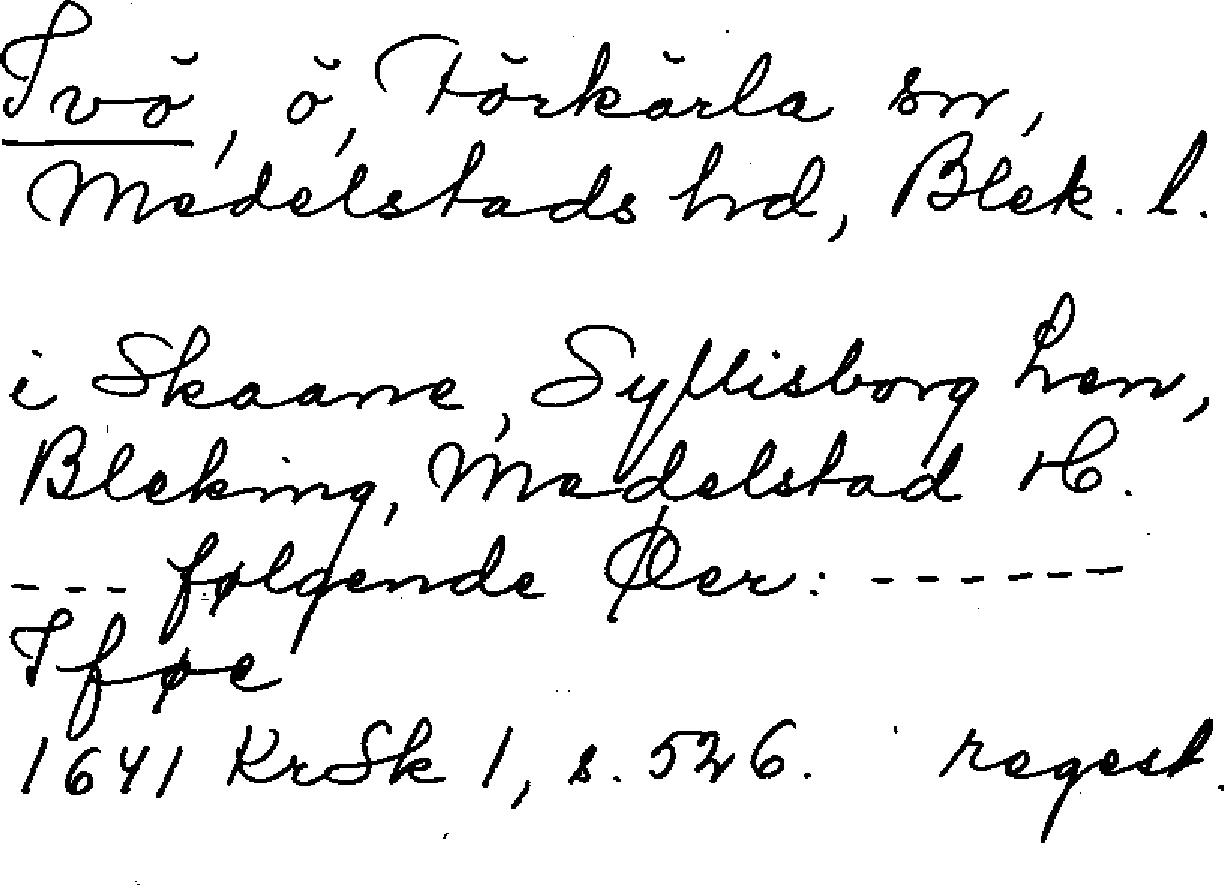 Ivö, ö, Förkärla sn,
Medelstads hd, Blek. l.
i Skaane, Syllisborg Len,
Bleking, Medelstad H.
--- følgende Øer: ------
Iføe
1641 KrSk 1, s. 526. regest.